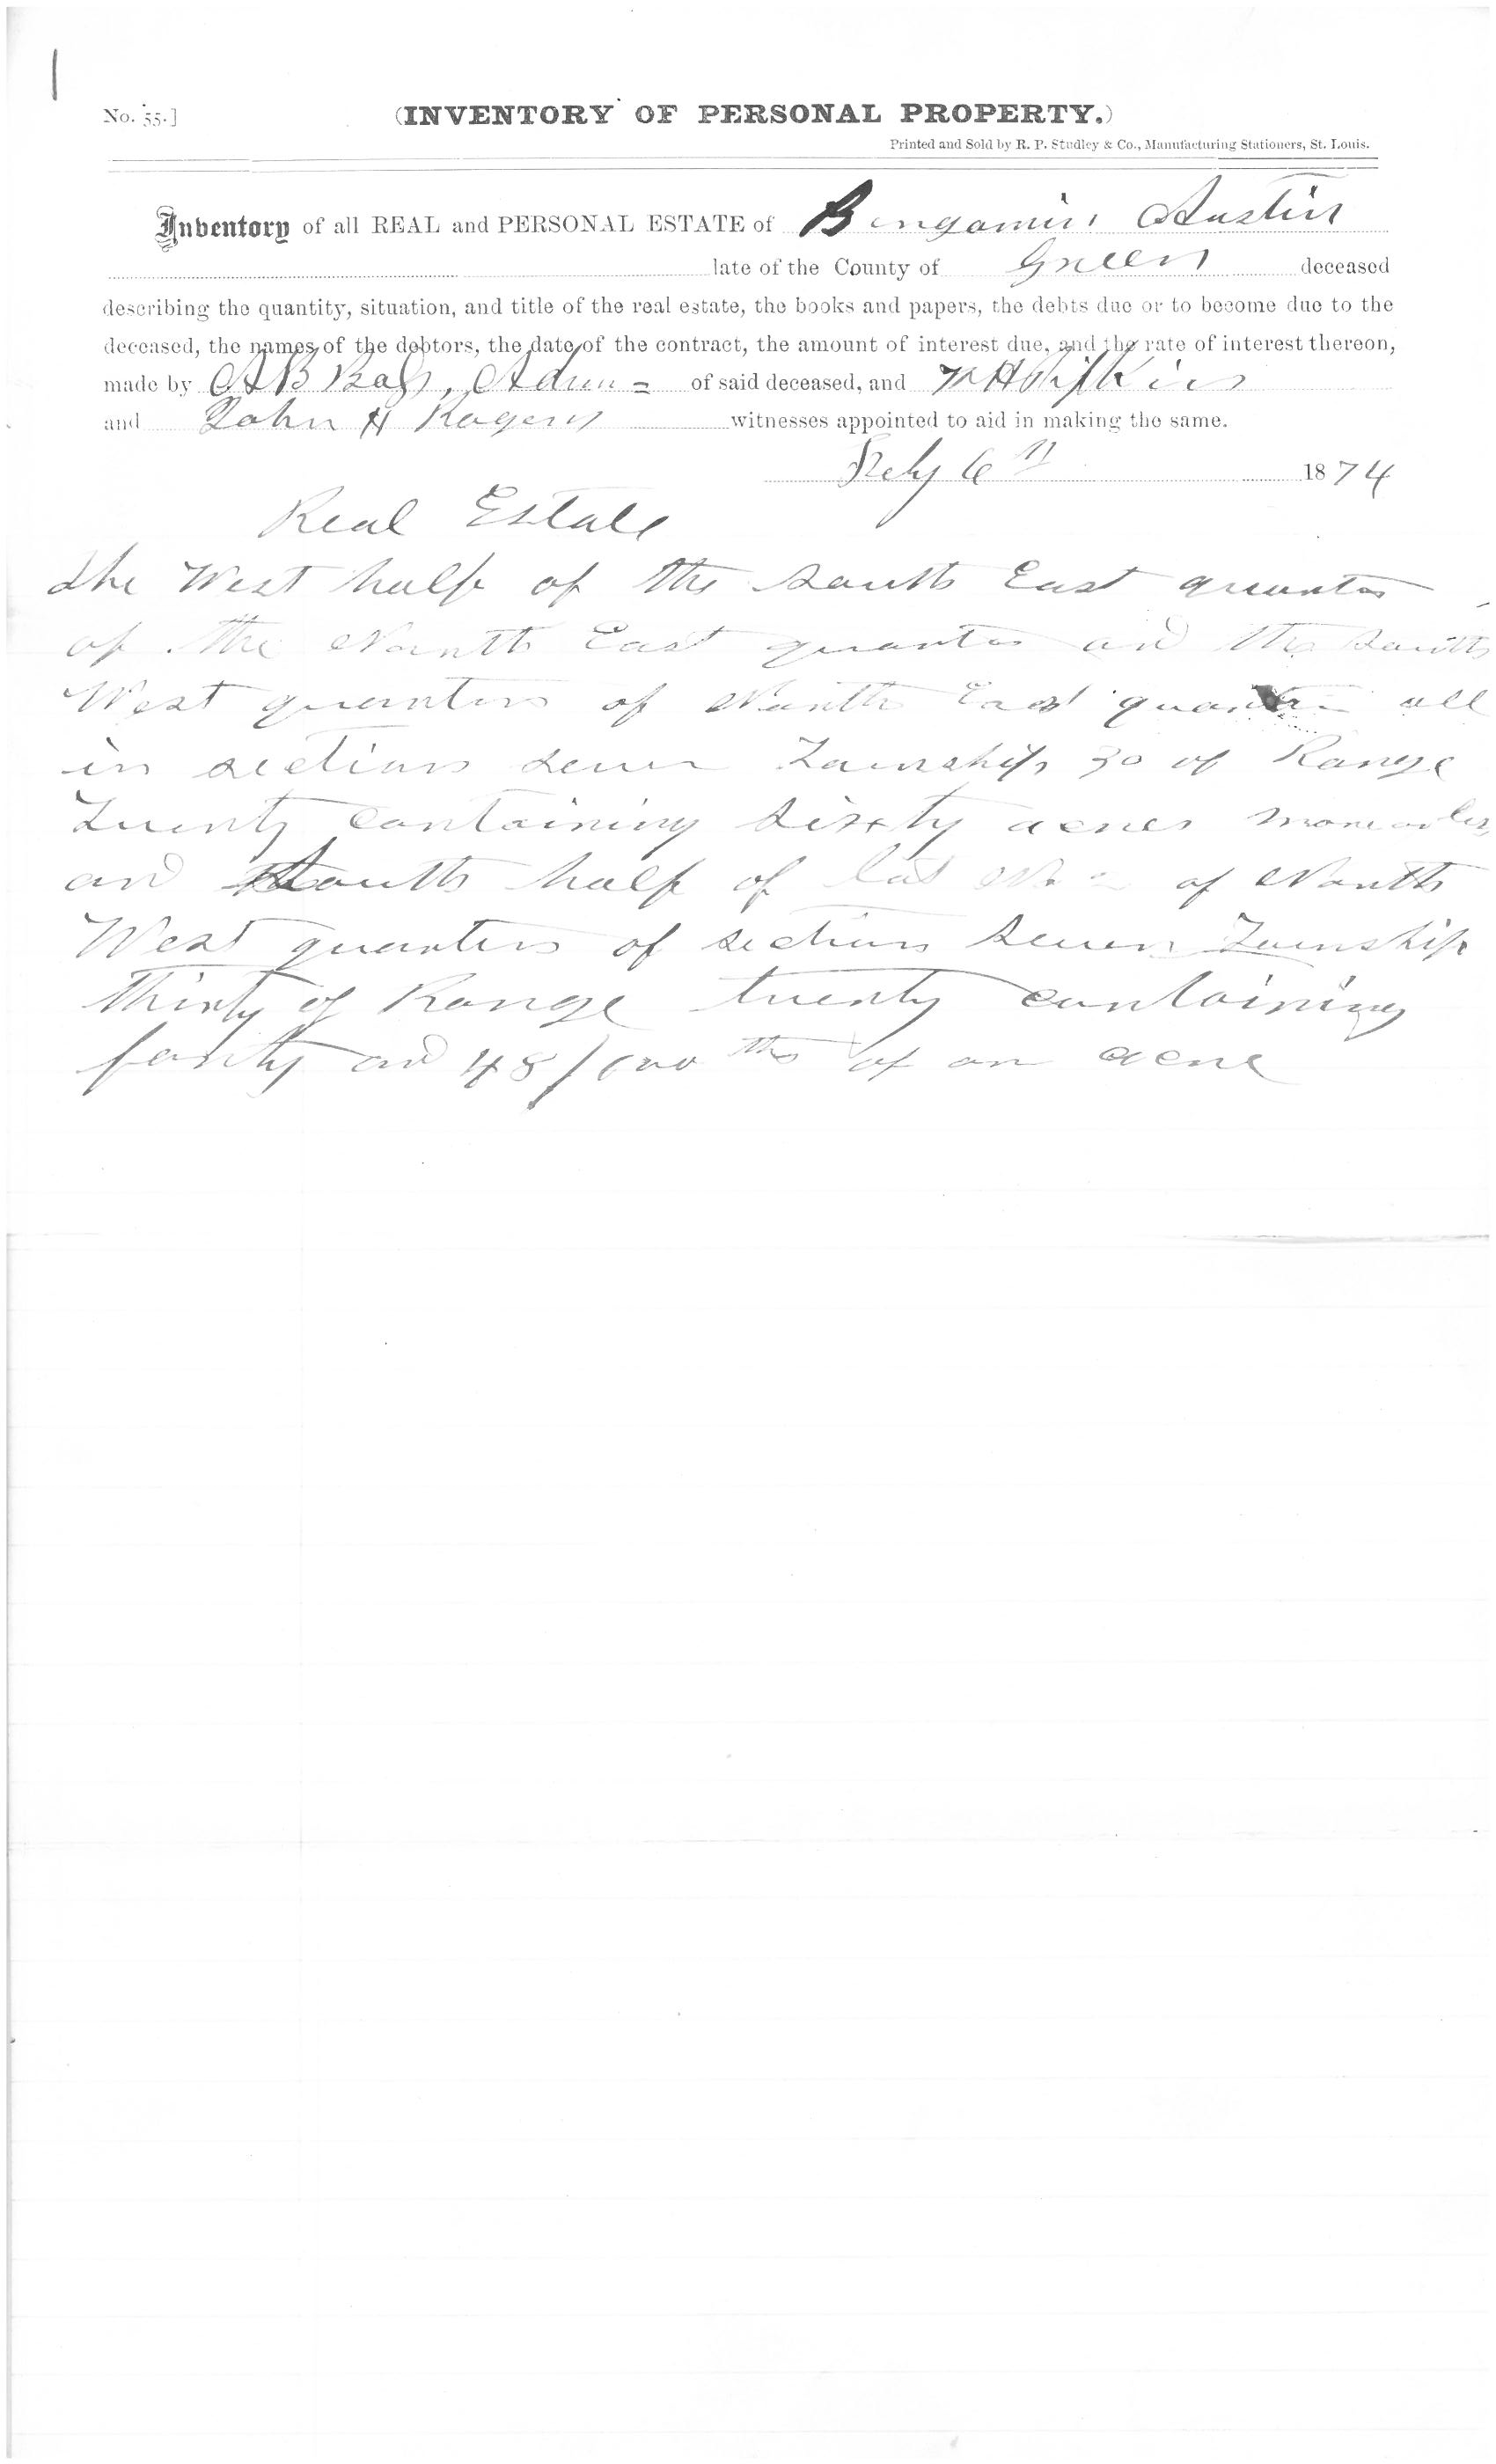 No. 55.]
(INVENTORY OF PERSONAL PROPERTY.)
Printed and Sold by R. P. Studley & Co., Manufacturing Stationers, St. Louis.
Inventory of all REAL and PERSONAL ESTATE of Bengamin Austin
late of the County of Green deceased
describing the quantity, situation, and title of the real estate, the books and papers, the debts due or to become due to the
deceased, the names of the debtors, the date of the contract, the amount of interest due, and the rate of interest thereon,
made by A B Adm = of said deceased, and
and John H Rogers witnesses appointed to aid in making the same.
Feby 6th 1874
Real Estate
the West half of the South East quarter
of the North East quarter and the South
West quarter of North East quarter all
in section seven Township 30 of Range
Twenty containing Sixty acres more or less
and South half of lot No of North
West quarter of section Seven Township
Thirty of Range twenty containing
forty and 48/100 ths of an acre